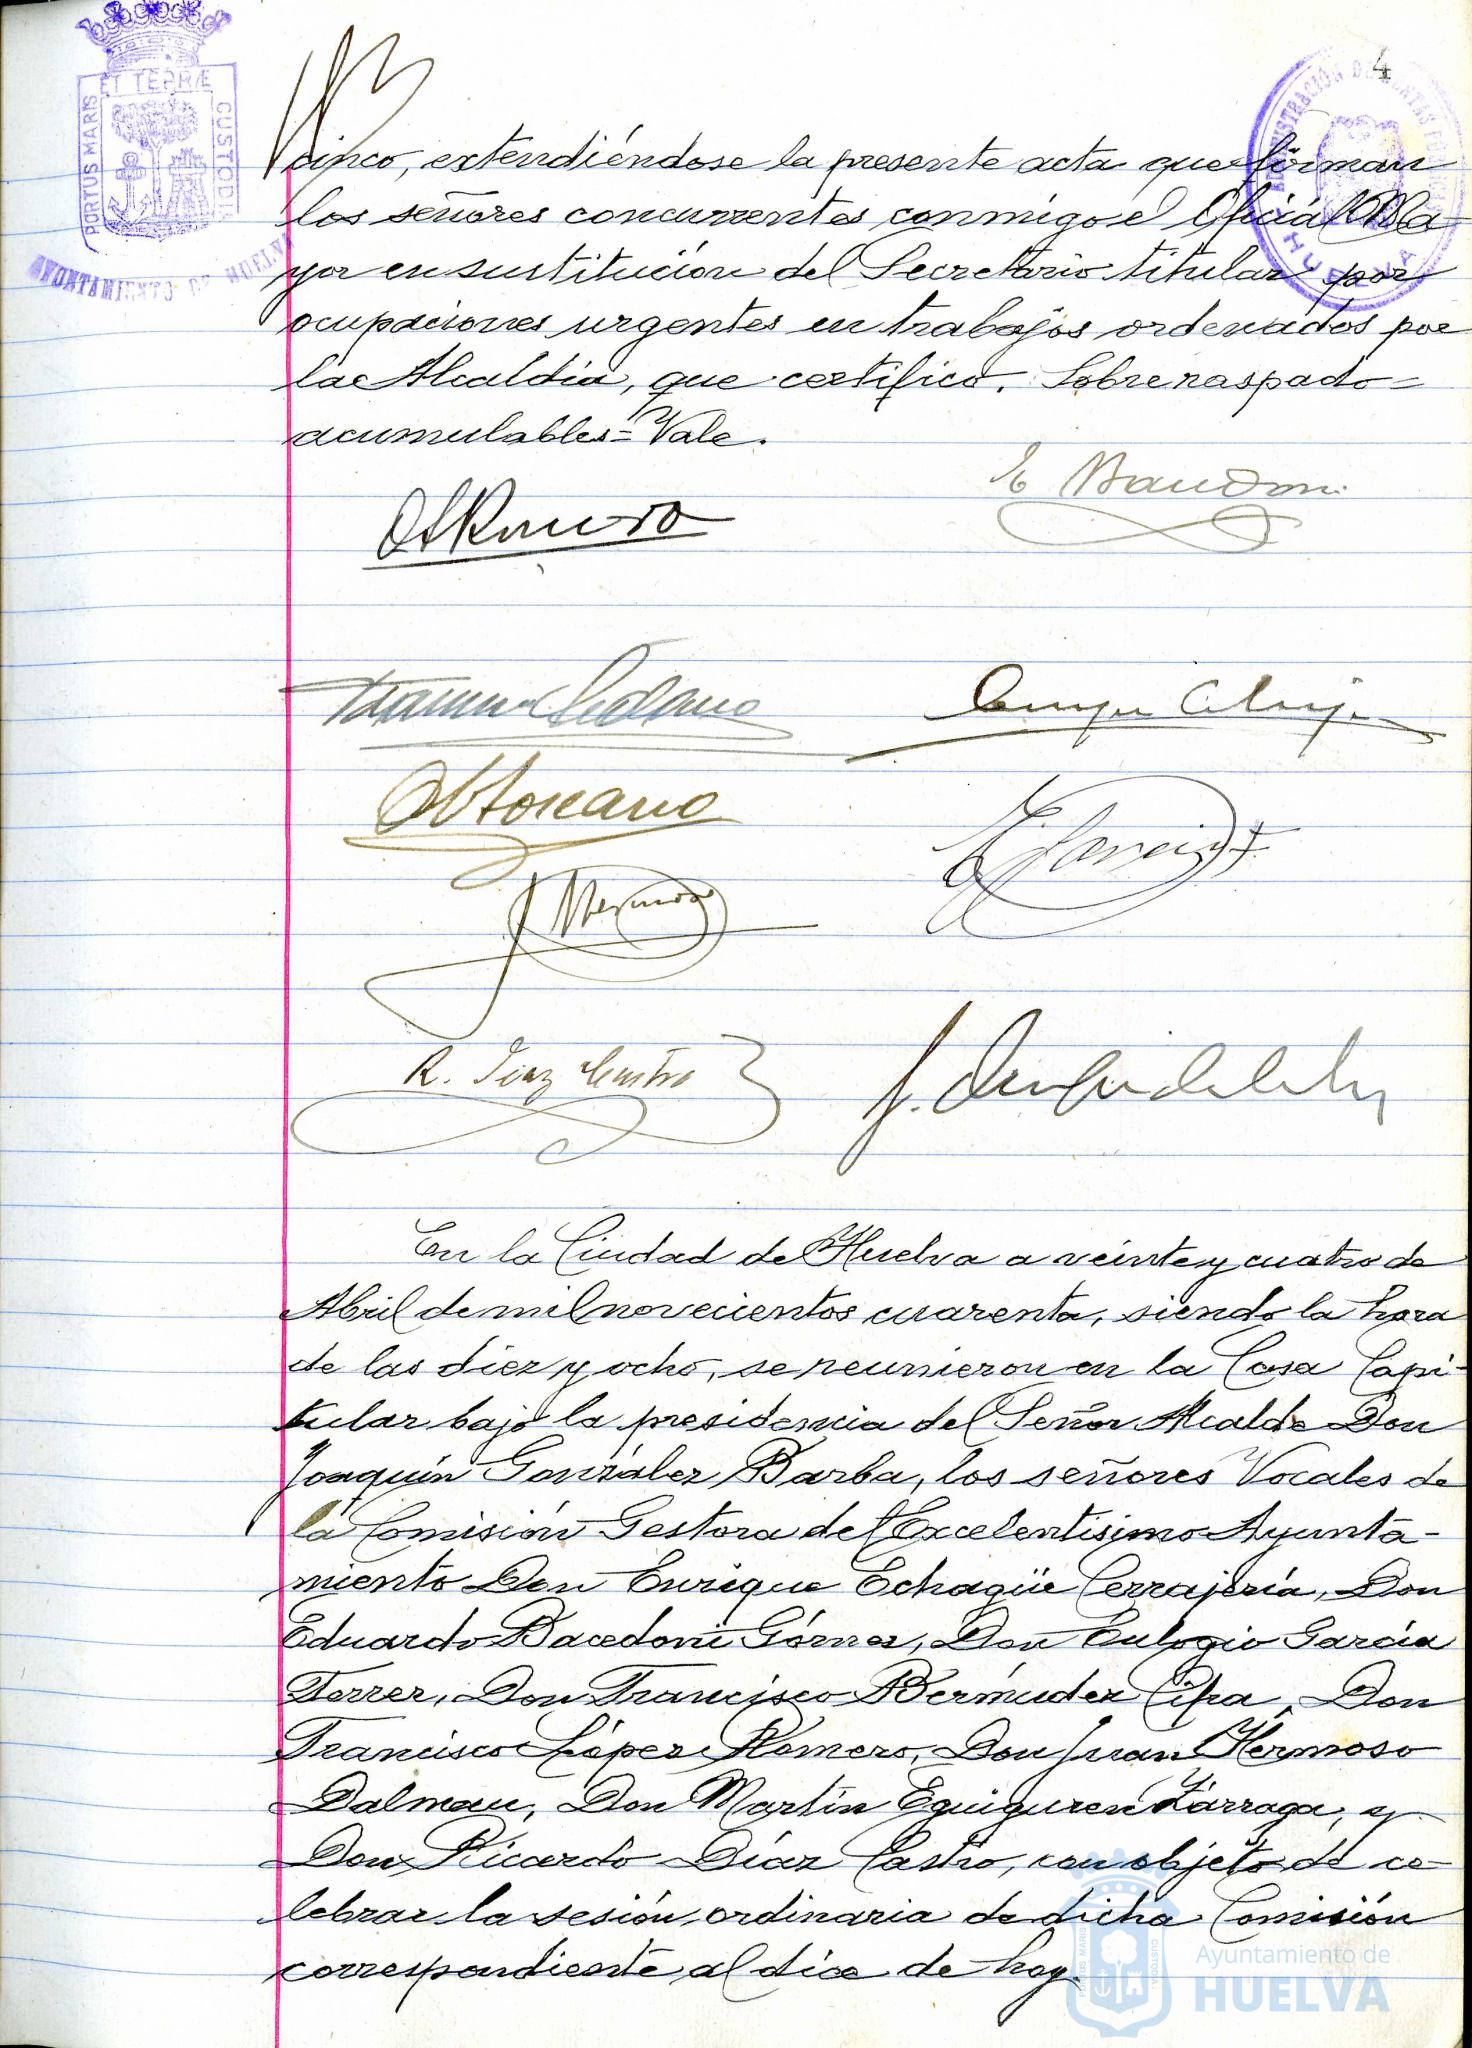 4
PORTUS MARIS
ET TERRÆ
CUSTODIA
AYUNTAMIENTO DE HUELVA
HUELVA
cinco, extendiéndose la presente acta que firman
los señores concurrentes conmigo el Oficial Ma-
yor en sustitución del Secretario titular por
ocupaciones urgentes en trabajos ordenados por
la Alcaldía, que certifico. Sobrerraspado=
acumulables=Vale.
R. Diaz Castro
En la Ciudad de Huelva a veinte y cuatro de
Abril de mil novecientos cuarenta, siendo la hora
de las diez y ocho, se reunieron en la Casa Capi-
tular bajo la presidencia del Señor Alcalde Don
Joaquín González Barba, los señores Vocales de
la Comisión Gestora del Excelentísimo Ayunta-
miento Don Enrique Echagüe Cerrajería, Don
Eduardo Bacedoni Gómez, Don Eulogio García
Ferrer, Don Francisco Bermúdez Cifra, Don
Francisco López Romero, Don Juan Hermoso
Dalmau, Don Martín Eguiguren Zárraga, y
Don Ricardo Díaz Castro, con objeto de ce-
lebrar la sesión ordinaria de dicha Comisión
correspondiente al día de hoy.
Ayuntamiento de
HUELVA